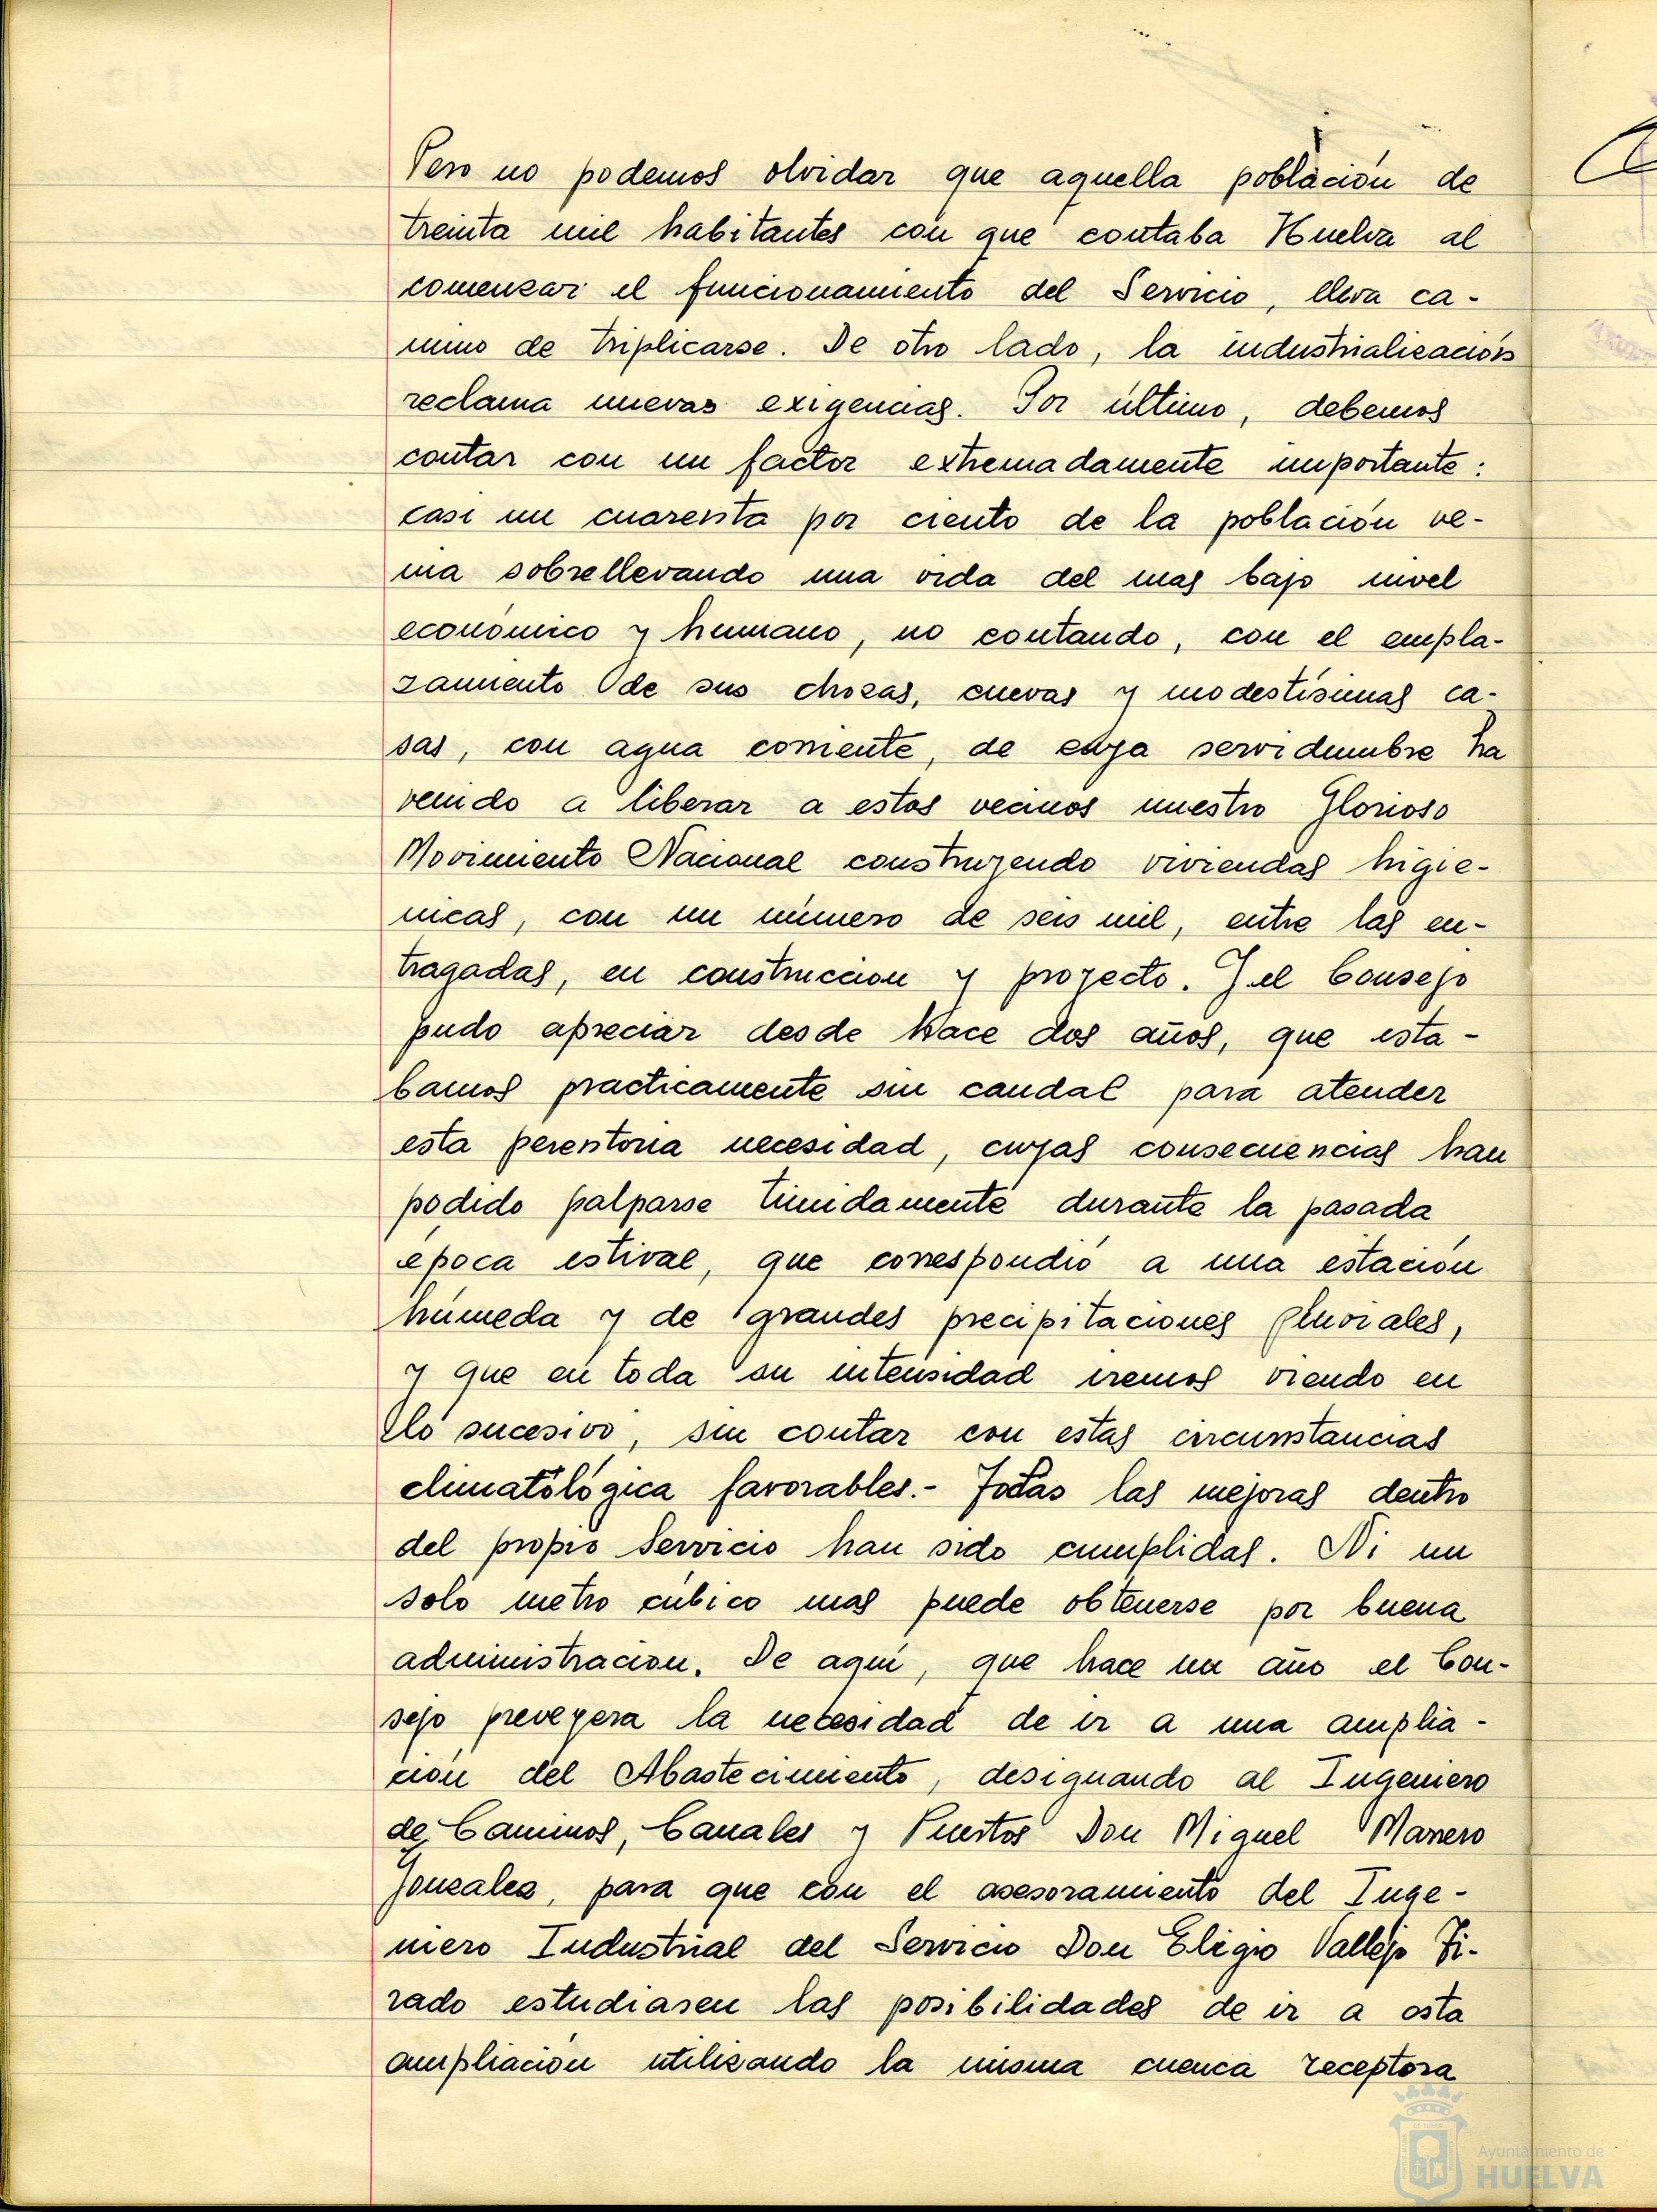 Pero no podemos olvidar que aquella población de
treinta mil habitantes con que contaba Huelva al
comenzar el funcionamiento del Servicio, lleva ca-
mino de triplicarse. De otro lado, la industrialización
reclama nuevas exigencias. Por último, debemos
contar con un factor extremadamente importante:
casi un cuarenta por ciento de la población ve-
nia sobrellevando una vida del mas bajo nivel
económico y humano, no contando, con el empla-
zamiento de sus chozas, cuevas y modestísimas ca-
sas, con agua corriente, de cuya servidumbre ha
venido a liberar a estos vecinos nuestro Glorioso
Movimiento Nacional construyendo viviendas higie-
nicas, con un número de seis mil, entre las en-
tragadas, en construccion y proyecto. Y el Consejo
pudo apreciar desde hace dos años, que esta-
bamos practicamente sin caudal para atender
esta perentoria necesidad, cuyas consecuencias han
podido palparse timidamente durante la pasada
epoca estival, que correspondió a una estación
húmeda y de grandes precipitaciones pluviales,
y que en toda su intensidad iremos viendo en
lo sucesivo, sin contar con estas circunstancias
climatológica favorables.- Todas las mejoras dentro
del propio Servicio han sido cumplidas. Ni un
solo metro cúbico mas puede obtenerse por buena
administracion. De aqui, que hace un año el Con-
sejo preveyera la necesidad de ir a una amplia-
ción del Abastecimiento, designando al Ingeniero
de Caminos, Canales y Puertos Don Miguel Manero
Gonzalez, para que con el asesoramiento del Inge-
niero Industrial del Servicio Don Eligio Vallejo Ti-
rado estudiasen las posibilidades de ir a esta
ampliación utilizando la misma cuenca receptora
Ayuntamiento de
HUELVA